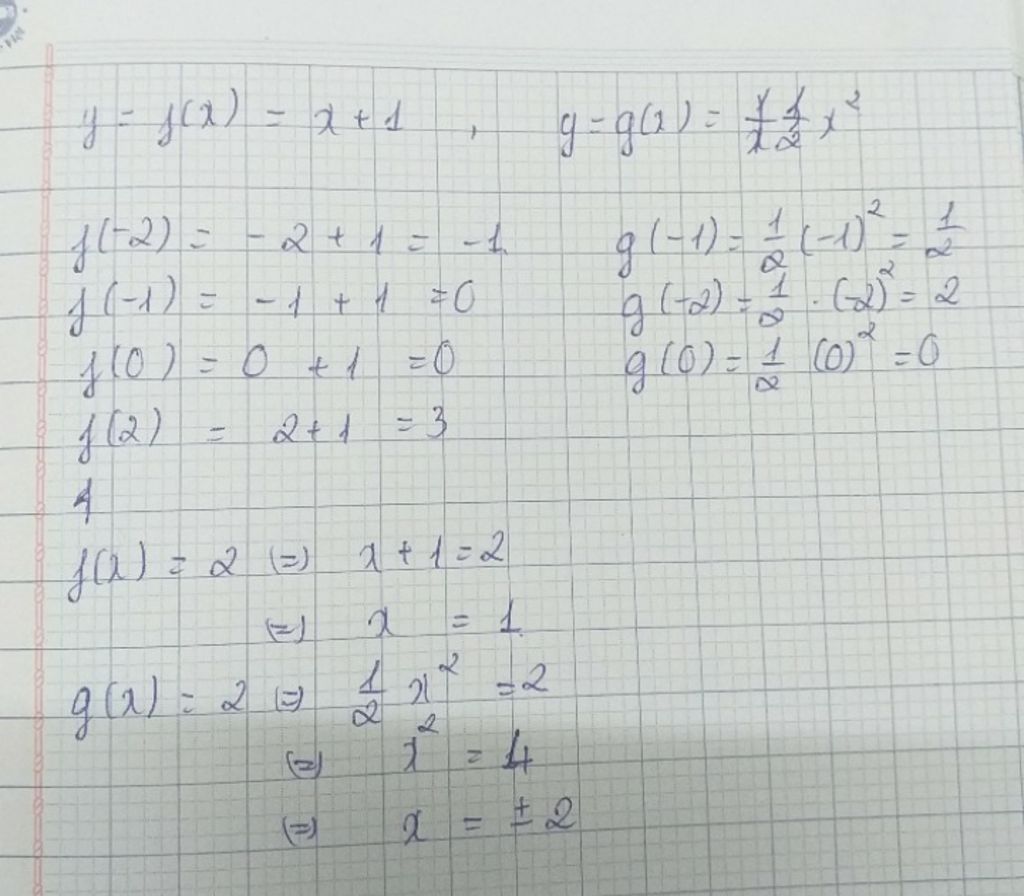 y = f(x) = x + 1 , y = g(x) = 1/2 x²
f(-2) = -2 + 1 = -1 g(-1) = 1/2 (-1)² = 1/2
f(-1) = -1 + 1 = 0 g(-2) = 1/2 . (-2)² = 2
f(0) = 0 + 1 = 0 g(0) = 1/2 (0)² = 0
f(2) = 2 + 1 = 3
f(x) = 2 (=) x + 1 = 2
(=) x = 1
g(x) = 2 (=) 1/2 x² = 2
(=) x² = 4
(=) x = ± 2